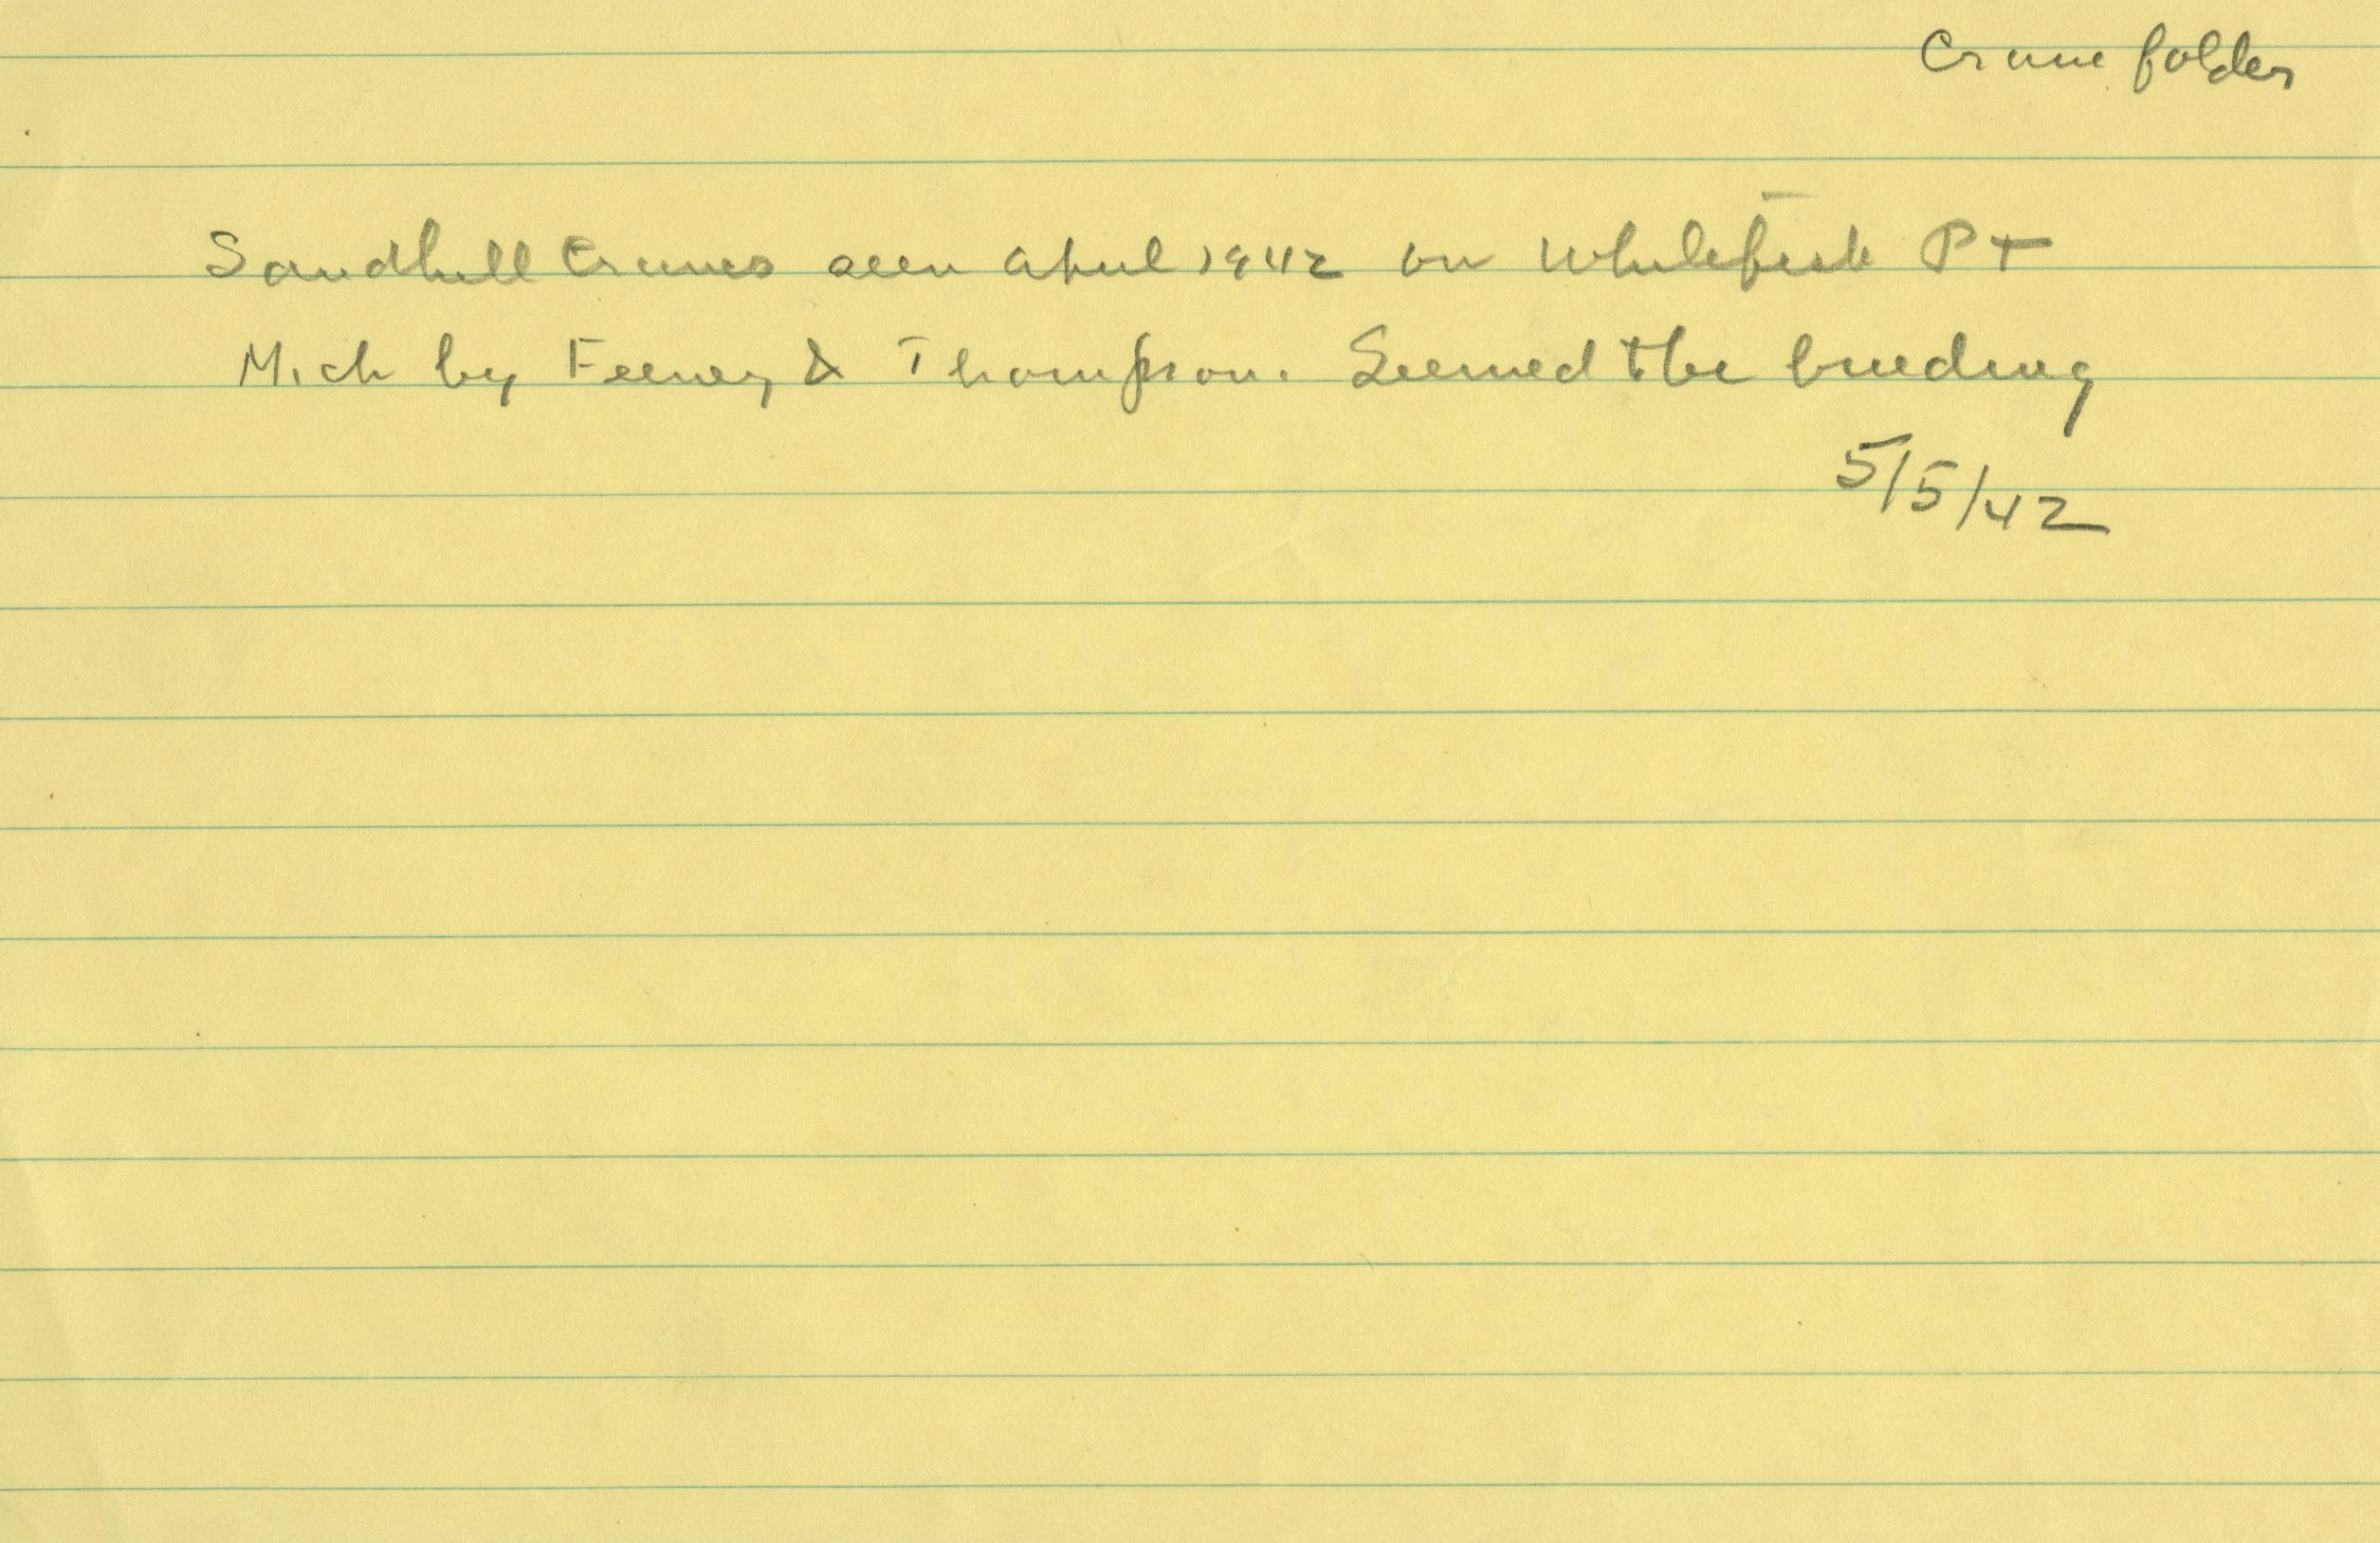 Crane folder
Sandhill Cranes seen April 1942 on Whitefish Pt
Mich by Feeney & Thompson. Seemed to be breeding
5/5/42